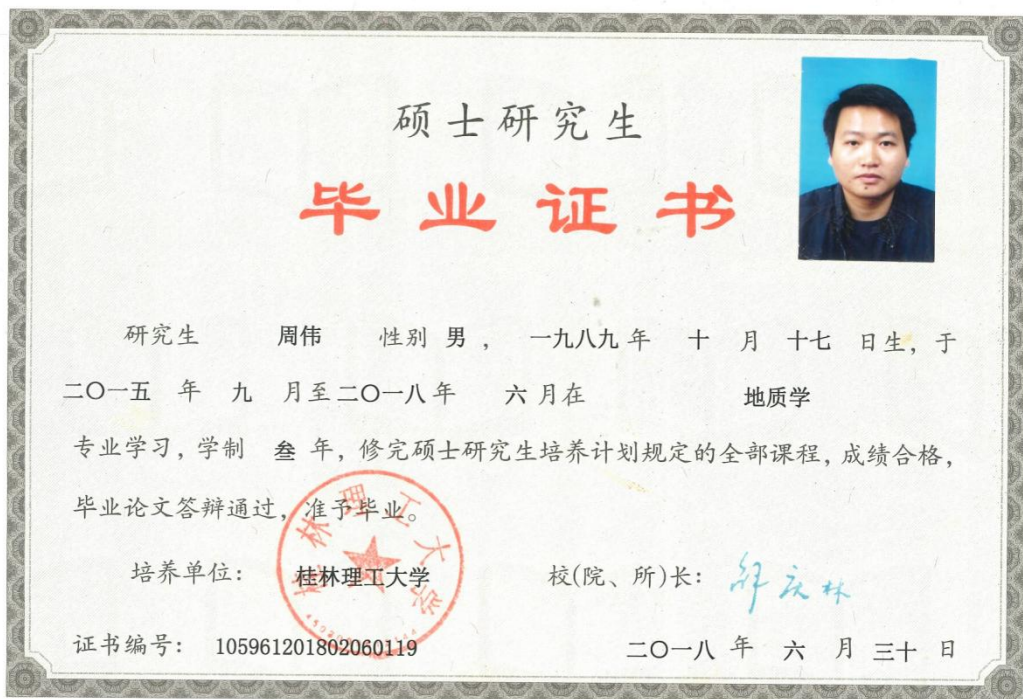 硕士研究生
毕业证书
研究生 周伟 性别 男 ， 一九八九 年 十 月 十七 日生，于
二〇一五 年 九 月至 二〇一八 年 六 月在 地质学
专业学习，学制 叁 年，修完硕士研究生培养计划规定的全部课程，成绩合格，
毕业论文答辩通过，准予毕业。
桂林理工大学
培养单位： 桂林理工大学 校(院、所)长： 解庆林
证书编号： 105961201802060119 二〇一八 年 六 月 三十 日